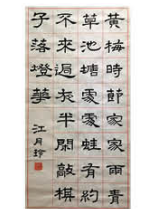 黃梅時節家家雨青
草池塘處處蛙有約
不來過夜半閒敲棋
子落燈華
江月